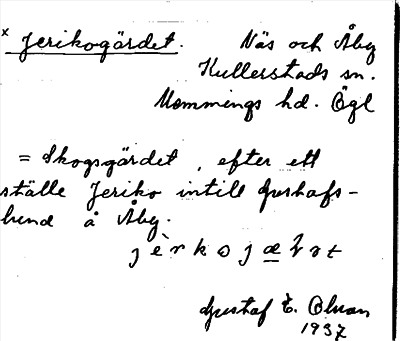 x Jerikogärdet. Näs och Åby
Kullerstads sn.
Memmings hd. Ögl
= Skogsgärdet, efter ett
ställe Jeriko intill Gustafs-
lund å Åby.
Gustaf E. Olson
1937